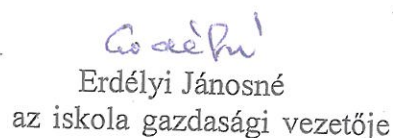 Erdélyi Jánosné
az iskola gazdasági vezetője